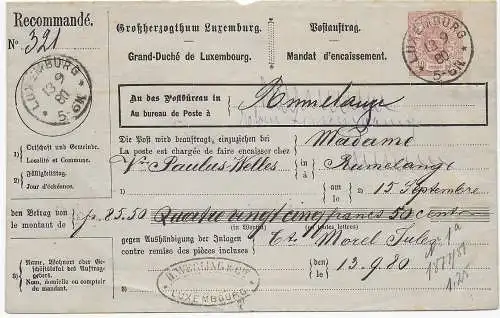 Recommandé.
Großherzogthum Luxemburg.
Postauftrag.
Grand-Duché de Luxembourg.
Mandat d'encaissement.
No. 321
LUXEMBURG
13 9
80
5-6N
LUXEMBURG
13 9
80
5-6N
An das Postbüreau in
Au bureau de Poste à
Rumelange
Die Post wird beauftragt, einzuziehen bei
La poste est chargée de faire encaisser chez
Madame
1) Ortschaft und Gemeinde.
Localité et Commune.
Vve Paulus Welles
in
à
1)
Rumelange
2) Fälligkeitstag.
Jour d'échéance.
am
le
2)
15 Septembre
den Betrag von
le montant de
fr. 85.50
Quatre vingt cinq francs 50 cent
(in Worten)
(en toutes lettres)
3) Name, Wohnort oder Geschäftslokal des Auftraggebers.
Nom, domicile ou comptoir du mandant.
gegen Aushändigung der Inlagen
contre remise des pièces incluses
Morel
den
le
13.9.80
3)
LUXEMBOURG
1.25